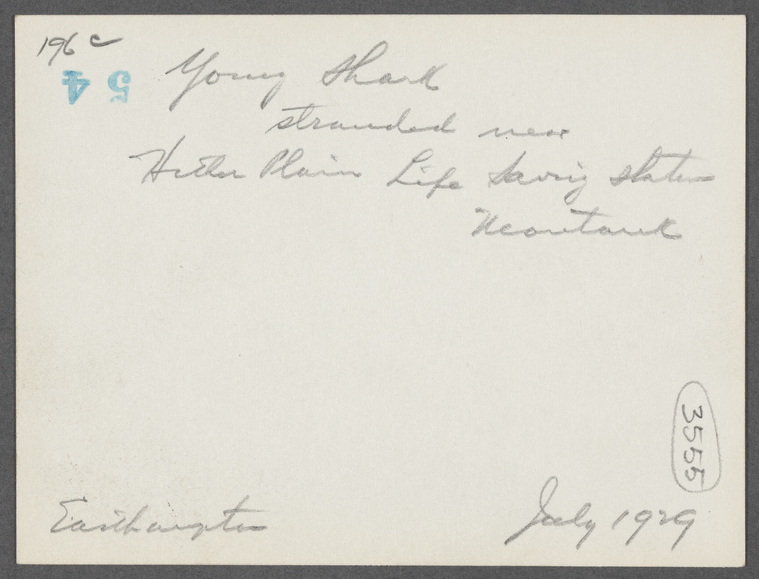 196c
54
Young Shark
stranded near
Hither Plain Life Saving Station
Montauk
3555
Easthampton
July 1929